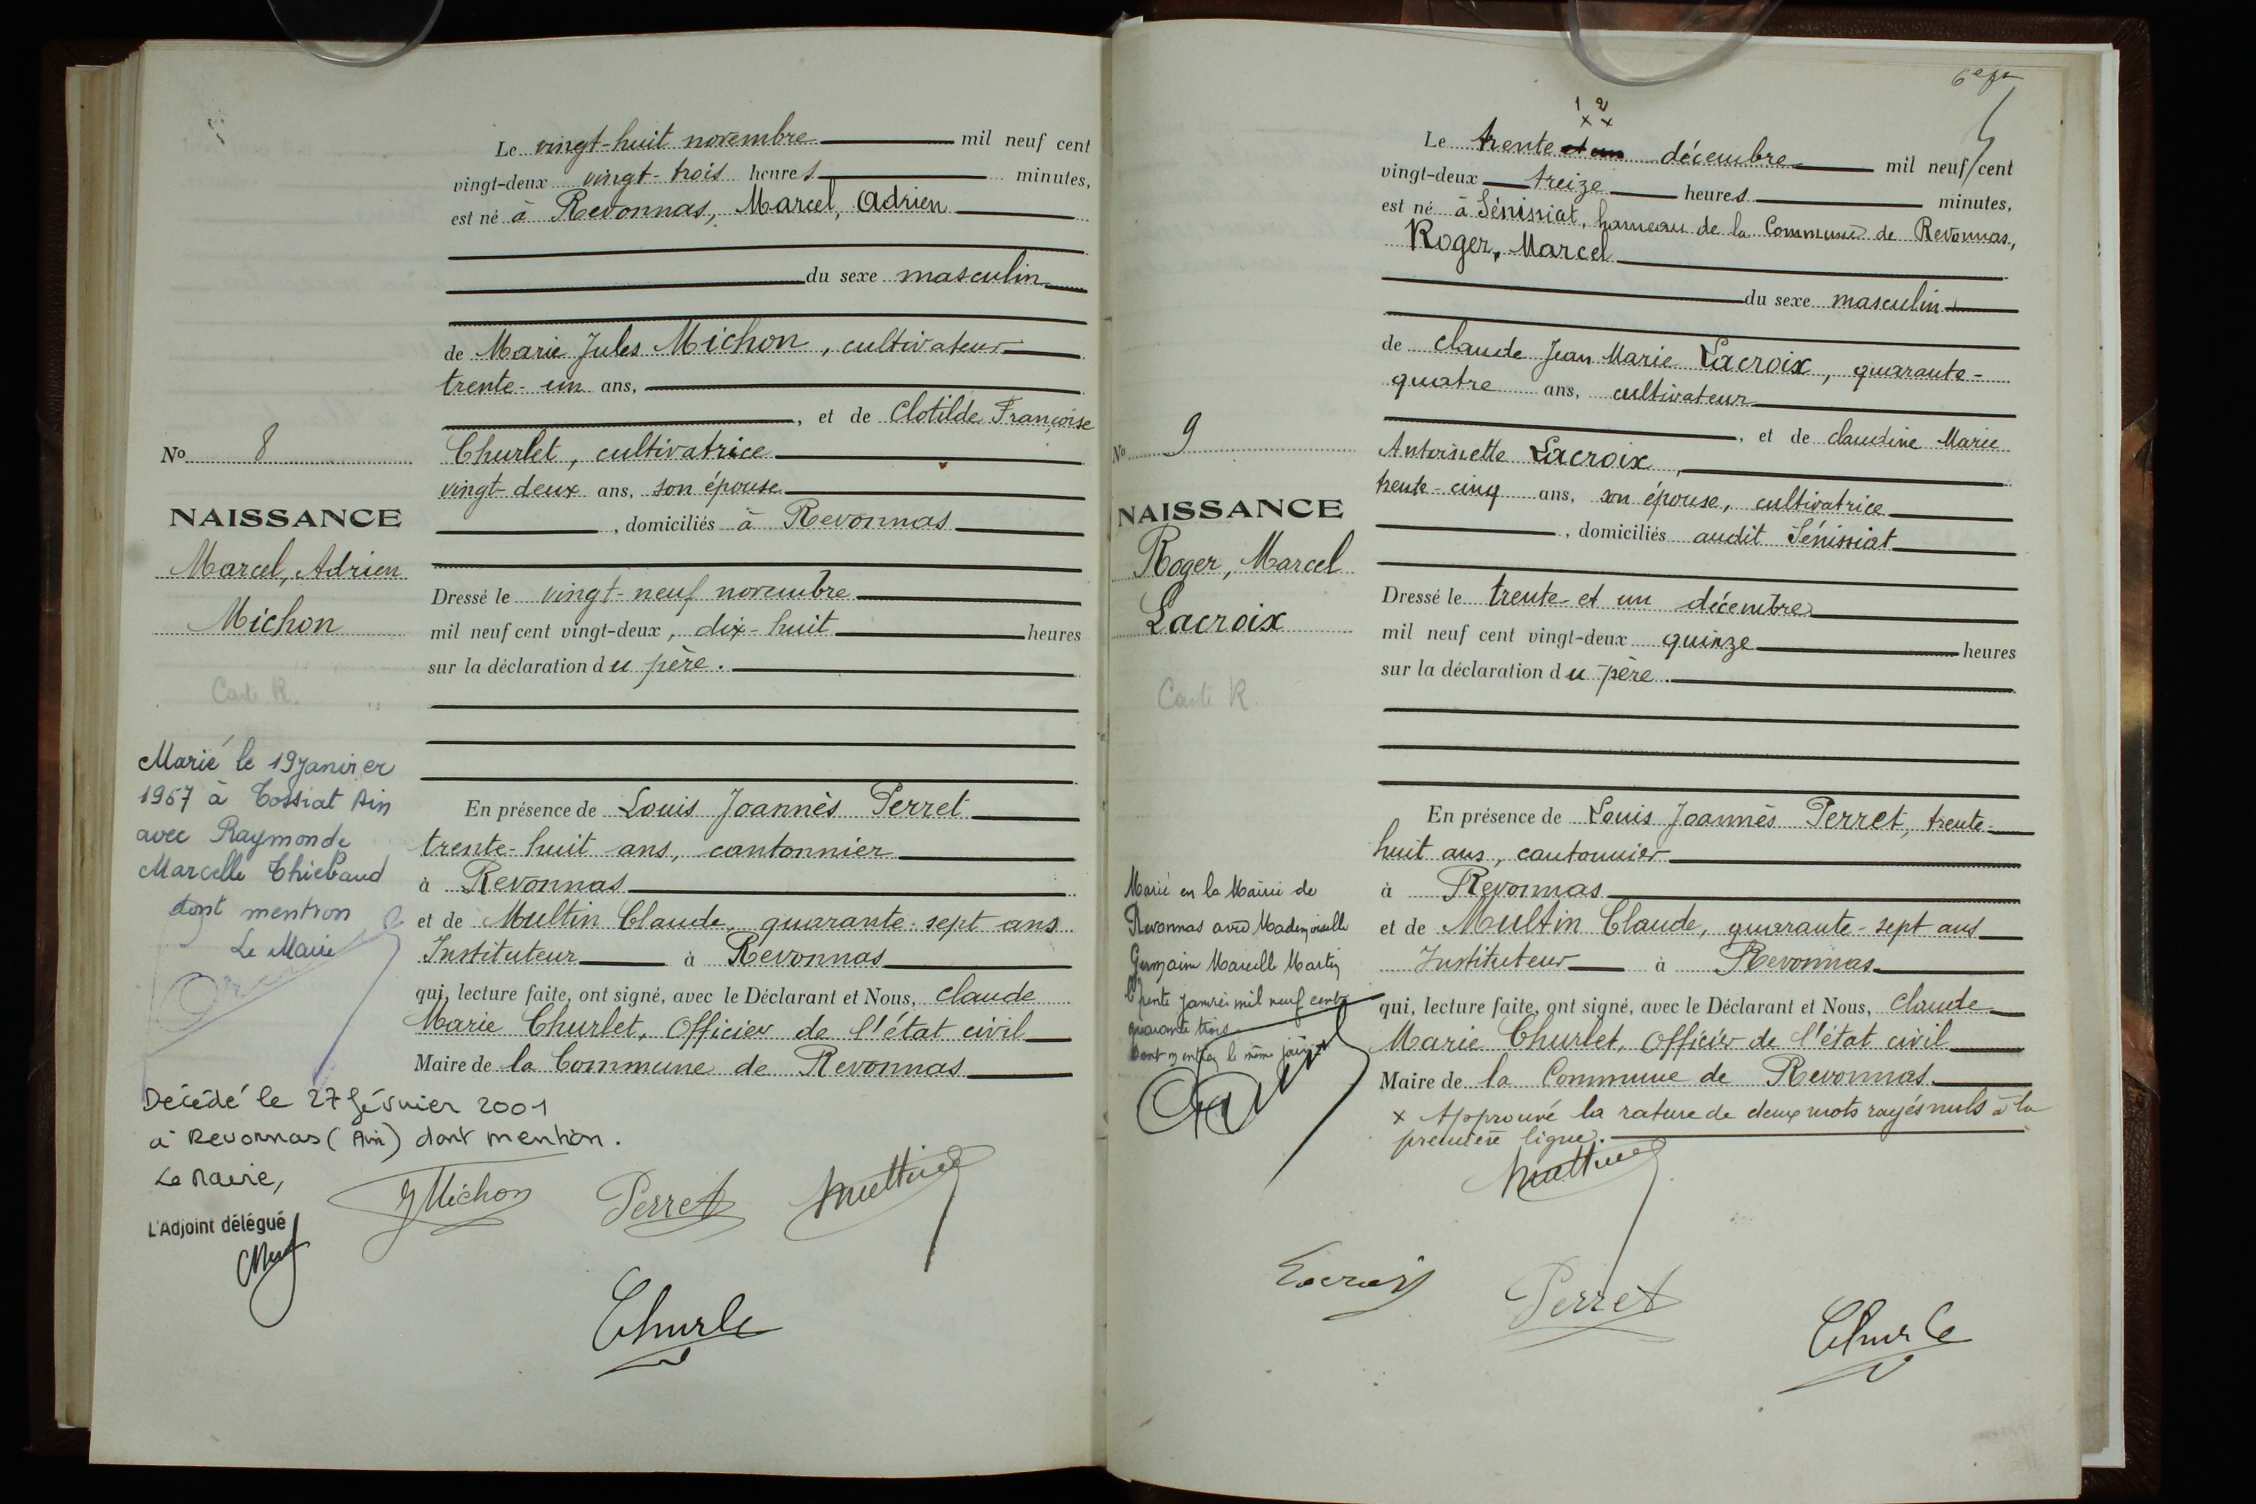 Le vingt-huit novembre mil neuf cent
vingt-deux vingt-trois heures minutes,
est né à Revonnas, Marcel, Adrien
du sexe masculin
de Marie Jules Michon, cultivateur
trente-un ans,
, et de Clotilde Françoise
Churlet, cultivatrice
vingt-deux ans, son épouse
, domiciliés à Revonnas
Dressé le vingt-neuf novembre
mil neuf cent vingt-deux, dix-huit heures
sur la déclaration du père.
En présence de Louis Joannès Perret
trente-huit ans, cantonnier
à Revonnas
et de Multin Claude, quarante-sept ans
Instituteur à Revonnas
qui, lecture faite, ont signé, avec le Déclarant et Nous, Claude
Marie Churlet, Officier de l'état civil
Maire de la Commune de Revonnas
No 8
NAISSANCE
Marcel, Adrien
Michon
Carte R.
Marié le 19 janvier
1957 à Tossiat Ain
avec Raymonde
Marcelle Thiebaud
dont mention
Le Maire
Décédé le 27 février 2001
à Revonnas (Ain) dont mention.
Le Maire,
L'Adjoint délégué
JMichon Perret Multin
Churle
6e
1 2
x x
Le trente et un décembre mil neuf cent
vingt-deux treize heures minutes,
est né à Sénissiat, hameau de la Commune de Revonnas,
Roger, Marcel
du sexe masculin
de Claude Jean Marie Lacroix, quarante-
quatre ans, cultivateur
, et de Claudine Marie
Antoinette Lacroix,
trente-cinq ans, son épouse, cultivatrice
, domiciliés audit Sénissiat
Dressé le trente et un décembre
mil neuf cent vingt-deux quinze heures
sur la déclaration du père.
En présence de Louis Joannès Perret, trente-
huit ans, cantonnier
à Revonnas
et de Multin Claude, quarante-sept ans
Instituteur à Revonnas
qui, lecture faite, ont signé, avec le Déclarant et Nous, Claude
Marie Churlet, Officier de l'état civil
Maire de la Commune de Revonnas
x Approuvé la rature de deux mots rayés nuls à la
première ligne.
No 9
NAISSANCE
Roger, Marcel
Lacroix
Carte R.
Marié en la Mairie de
Revonnas avec Mademoiselle
Germaine Marcelle Martin
le trente janvier mil neuf cent
quarante trois
Dont mention le même jour
Multin
Lacroix
Perret
Churle